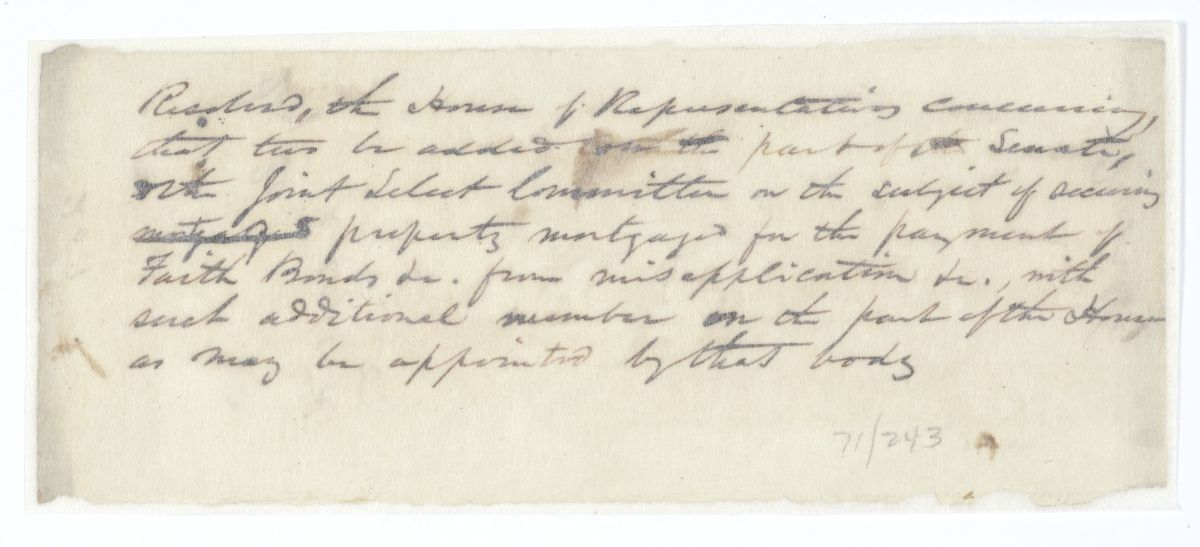 Resolved, the House of Representatives concurring,
that two be added on the part of the Senate,
to the Joint Select Committee on the subject of securing
property mortgaged for the payment of
Faith Bonds &c. from misapplication &c., with
such additional number on the part of the House
as may be appointed by that body
71/243